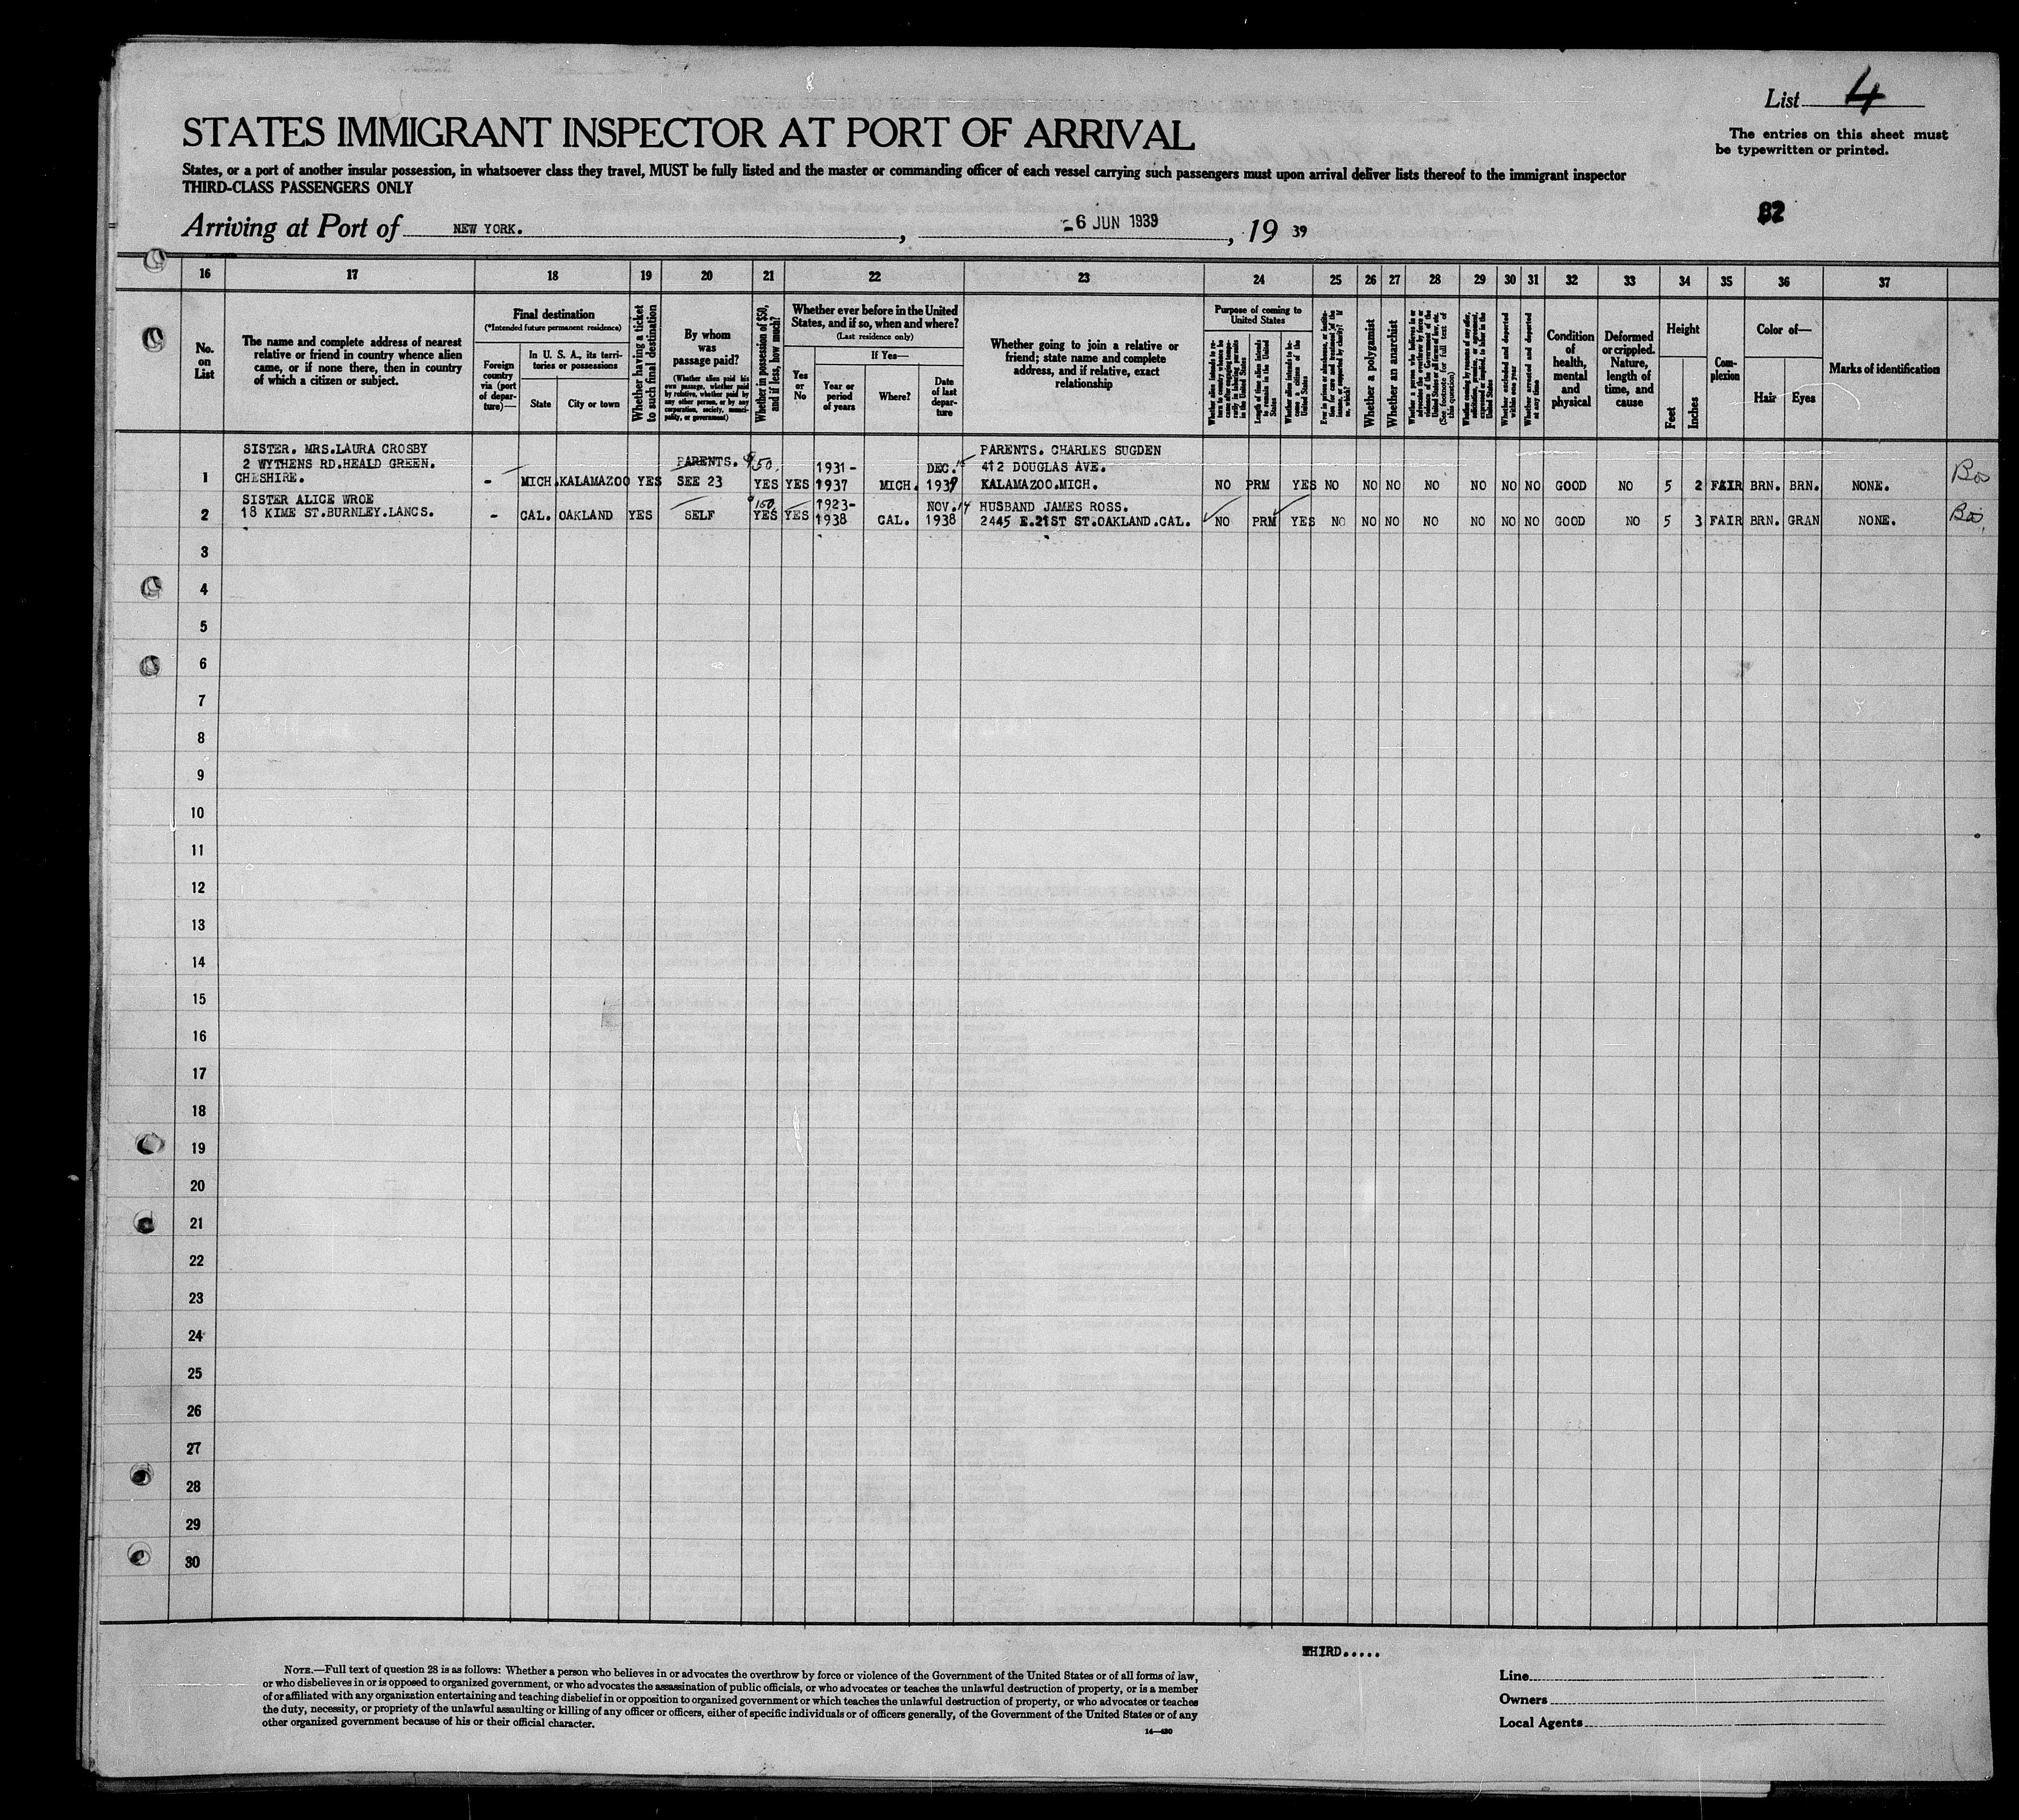 List 4
The entries on this sheet must
be typewritten or printed.
STATES IMMIGRANT INSPECTOR AT PORT OF ARRIVAL
States, or a port of another insular possession, in whatsoever class they travel, MUST be fully listed and the master or commanding officer of each vessel carrying such passengers must upon arrival deliver lists thereof to the immigrant inspector
THIRD-CLASS PASSENGERS ONLY
82
Arriving at Port of NEW YORK. , 6 JUN 1939 , 19 39
16 17 18 19 20 21 22 23 24 25 26 27 28 29 30 31 32 33 34 35 36 37
No. on List
The name and complete address of nearest
relative or friend in country whence alien
came, or if none there, then in country
of which a citizen or subject.
Final destination
(*Intended future permanent residence)
Foreign country via (port of departure)—
In U. S. A., its territories or possessions
State
City or town
Whether having a ticket to such final destination
By whom was passage paid?
(Whether alien paid his own passage, whether paid by relative, whether paid by any other person, or by any corporation, society, municipality, or government)
Whether in possession of $50, and if less, how much?
Whether ever before in the United
States, and if so, when and where?
(Last residence only)
Yes or No
If Yes—
Year or period of years
Where?
Date of last departure
Whether going to join a relative or
friend; state name and complete
address, and if relative, exact
relationship
Purpose of coming to United States
Length of time alien intends to remain in the United States
Whether alien intends to become a citizen of the United States
Whether a polygamist
Whether an anarchist
Whether excluded and deported within one year
Whether arrested and deported at any time
Condition of health, mental and physical
Deformed or crippled. Nature, length of time, and cause
Height
Feet
Inches
Complexion
Color of—
Hair
Eyes
Marks of identification
SISTER. MRS.LAURA CROSBY
2 WYTHENS RD.HEALD GREEN.
CHESHIRE.
1 - MICH. KALAMAZOO YES PARENTS. SEE 23 $50. YES YES 1931- 1937 MICH. DEC. 1937 PARENTS. CHARLES SUGDEN
412 DOUGLAS AVE.
KALAMAZOO.MICH. NO PRM YES NO NO NO NO NO NO NO GOOD NO 5 2 FAIR BRN. BRN. NONE. Bos
SISTER ALICE WROE
18 KIME ST.BURNLEY.LANCS.
2 - CAL. OAKLAND YES SELF $150 YES YES 1923- 1938 CAL. NOV. 14 1938 HUSBAND JAMES ROSS.
2445 E.21ST ST.OAKLAND.CAL. NO PRM YES NO NO NO NO NO NO NO GOOD NO 5 3 FAIR BRN. GRAN NONE. Bos.
3
4
5
6
7
8
9
10
11
12
13
14
15
16
17
18
19
20
21
22
23
24
25
26
27
28
29
30
THIRD.....
NOTE.—Full text of question 28 is as follows: Whether a person who believes in or advocates the overthrow by force or violence of the Government of the United States or of all forms of law,
or who disbelieves in or is opposed to organized government, or who advocates the assassination of public officials, or who advocates or teaches the unlawful destruction of property, or is a member
of or affiliated with any organization entertaining and teaching disbelief in or opposition to organized government or which teaches the unlawful destruction of property, or who advocates or teaches
the duty, necessity, or propriety of the unlawful assaulting or killing of any officer or officers, either of specific individuals or of officers generally, of the Government of the United States or of any
other organized government because of his or their official character.
14—430
Line
Owners
Local Agents